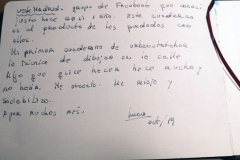 UskMadrid, grupo de Facebook que
justo hace aquí 1 año. Este cuaderno
es el producto de las quedadas con
ellos.
Mi primer cuaderno de urbansketchers
la técnica de dibujar en la calle
Algo que quise hacer hace mucho y
no podía. Me encanta. Me relaja y
sociabilizo.
A por muchos más.
oct/19